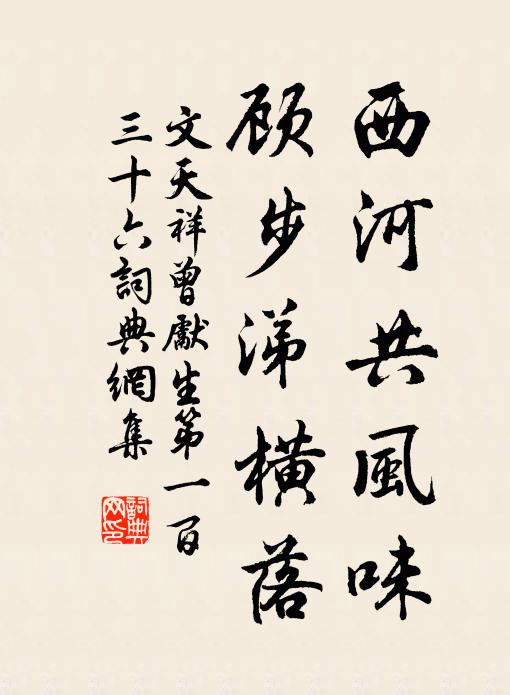 西河共風味
顧步涕橫落
文天祥曾獻生第一百
三十六詞典網集
詞典網印